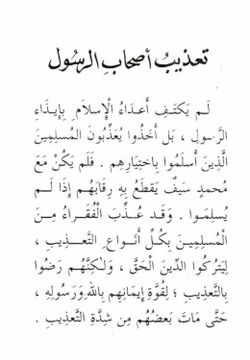 تعذيبُ أصحابِ الرسُول
لَم يَكتَفِ أَعدَاءُ الإِسلَامِ بِإِيذَاءِ
الرَّسُولِ ، بَل أَخَذُوا يُعَذِّبُونَ المُسلِمِينَ
الَّذِينَ أَسلَمُوا بِاختِيَارِهِم . فَلَم يَكُنْ مَعَ
مُحَمدٍ سَيفٌ يَقطَعُ بِهِ رِقَابَهُم إِذَا لَم
يُسلِمُوا . وَقَد عُذِّبَ الفُقَرَاءُ مِنَ
المُسلِمِينَ بِكُلِّ أَنوَاعِ التَّعذِيبِ ،
لِيَترُكُوا الدِّينَ الحَقَّ ، وَلٰكِنَّهُم رَضُوا
بِالتَّعذِيبِ ؛ لِقُوَّةِ إِيمَانِهِم بِاللهِ وَرَسُولِهِ ،
حَتَّى مَاتَ بَعضُهُم مِن شِدَّةِ التَّعذِيبِ .